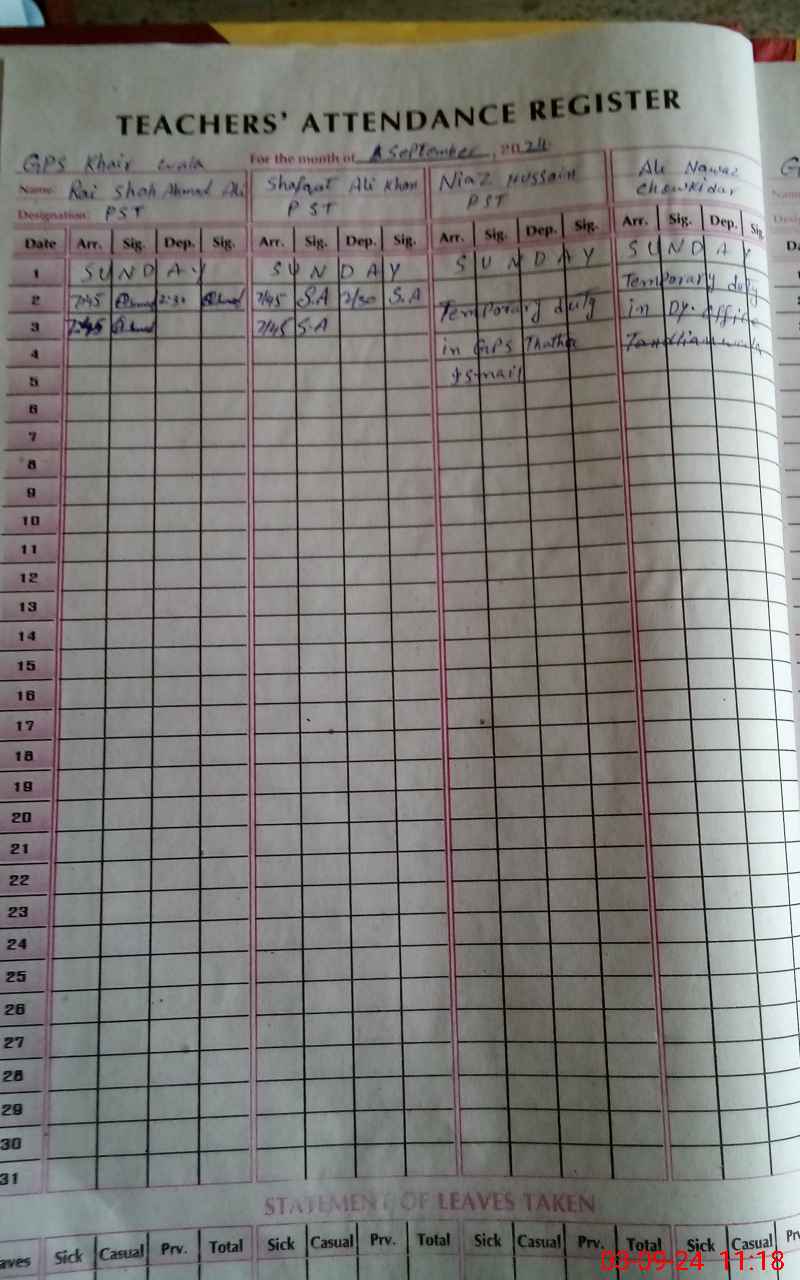 TEACHERS' ATTENDANCE REGISTER
GPS Khair wala For the month of September, 2024
Name: Rai Shah Ahmad Ali Shafqat Ali Khan Niaz Hussain Ali Nawaz
Designation: PST PST PST Chowkidar
Date Arr. Sig. Dep. Sig. Arr. Sig. Dep. Sig. Arr. Sig. Dep. Sig. Arr. Sig. Dep. Sig.
1 SUNDAY SUNDAY SUNDAY SUNDAY
2 7:45 2:30 7/45 S.A 2/30 S.A Temporary duty Temporary duty
3 7:45 7/45 S.A in GPS Thatha in Dy. office
4 Ismail
5
6
7
8
9
10
11
12
13
14
15
16
17
18
19
20
21
22
23
24
25
26
27
28
29
30
31
STATEMENT OF LEAVES TAKEN
aves Sick Casual Prv. Total Sick Casual Prv. Total Sick Casual Prv. Total Sick Casual Prv
03-09-24 11:18